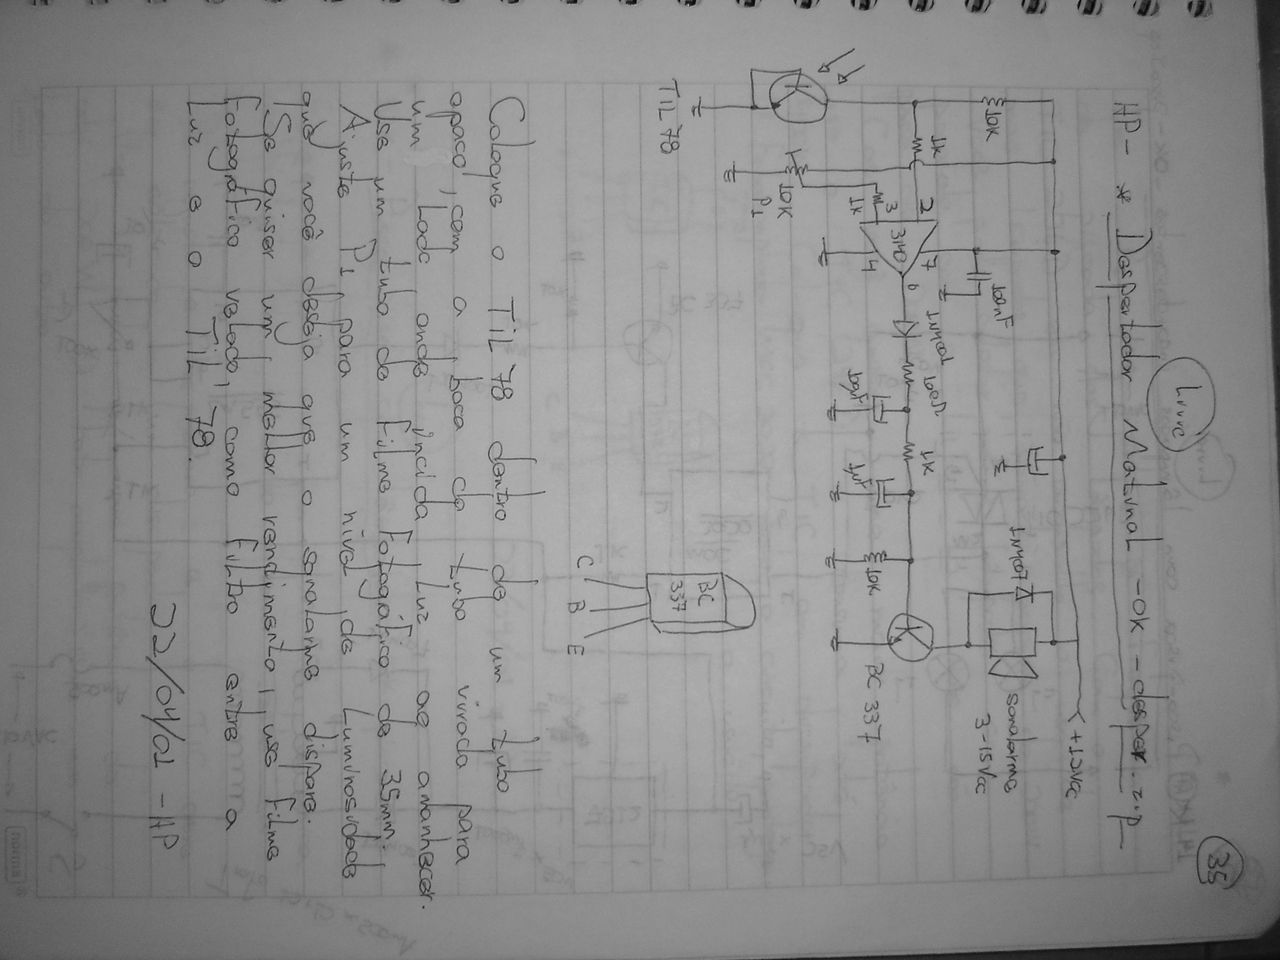 35
Livre
HP - * Despertador Matinal - ok - desper.zip
<+12Vcc
10K
1K
2
7
100nF
3
3140
6
1N4001
100Ω
1K
1N4007
sonalarme
3-15Vcc
1K
4
10K
P1
100µF
1µF
10K
BC 337
TIL 78
BC
337
C B E
Coloque o TIL 78 dentro de um tubo
opaco, com a boca do tubo virada para
um lado onde incida luz ao amanhecer.
Use um tubo de filme fotogáfico de 35mm.
Ajuste P1 para um nível de luminosidade
que você deseja que o sonalarme dispare.
Se quiser um melhor rendimento, use filme
fotográfico velado, como filtro entre a
luz e o TIL 78.
22/04/01 - HP